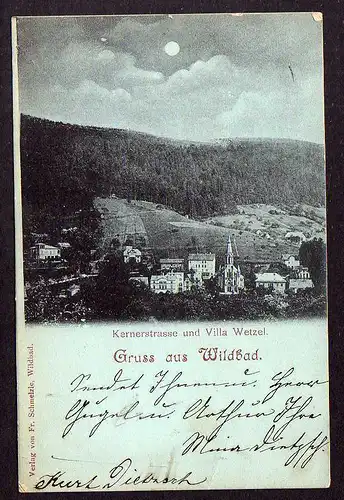 Kernerstrasse und Villa Wetzel.
Gruss aus Wildbad.
Verlag von Fr. Schmelzle, Wildbad.
Sendet Ihnen u. Herr
Gugel u. Arthur Ihre
Mina Dietzsch.
Kurt Dietzsch